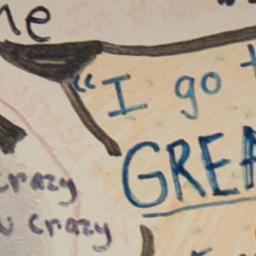 he
"I go t
GREA
crazy
u crazy